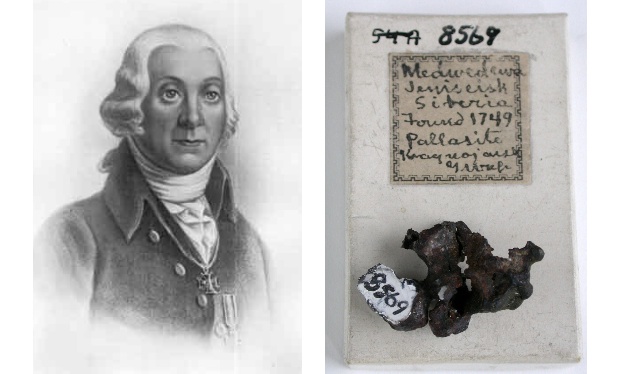 8569
Medwedewa
Jeniseisk
Siberia
Found 1749
Pallasite
8569